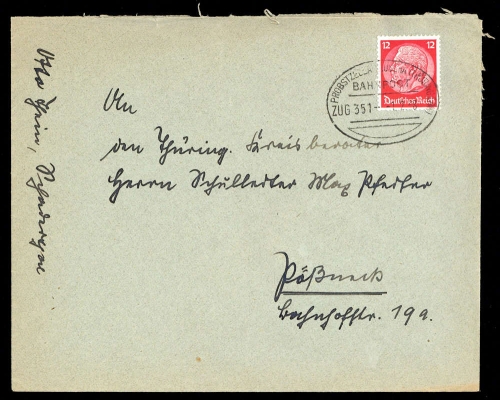 An
den Thüring. Kreisberater
Herrn Schulleiter Max Pfeifer
Pößneck
Bahnhofstr. 19a.
Otto
12 12
Deutsches Reich
PROBSTZELLA
BAHNPOST
ZUG 351